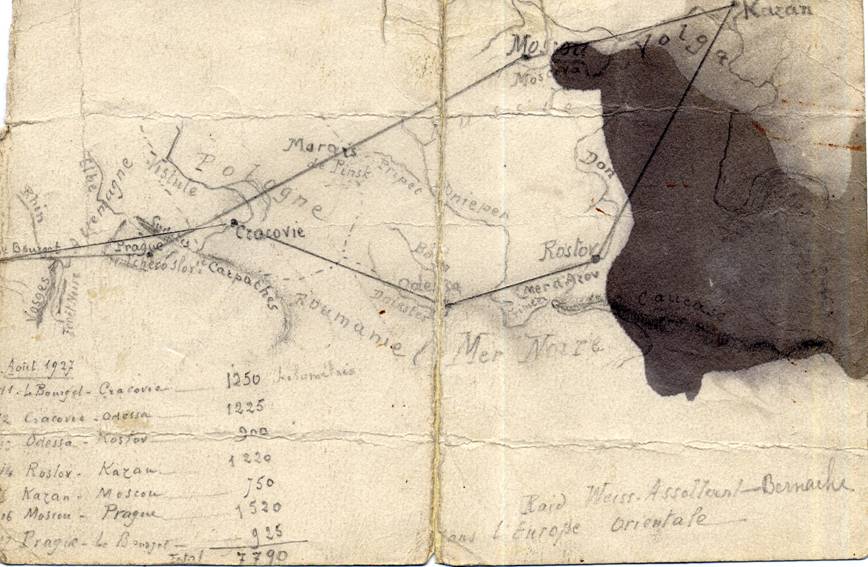 Kazan
Moscou
Volga
Moscova
Russie
Marais
de Pinsk
Pologne
Vistule
Elbe
Allemagne
Rhin
Pripet
Dnieper
Don
Cracovie
Rostov
Bourget
Prague
Carpathes
Boug
Odessa
Dniester
Mer d'Azov
Caucase
Vosges
Forêt Noire
Roumanie
Mer Noire
Août 1927
11 - Le Bourget - Cracovie 1250 kilomètres
12 Cracovie - Odessa 1225
Odessa - Rostov 900
14 Rostov - Kazan 1220
Kazan - Moscou 750
16 Moscou - Prague 1520
17 Prague - Le Bourget 925
Total 7790
Raid Weiss-Assollant-Bernache
dans L'Europe Orientale